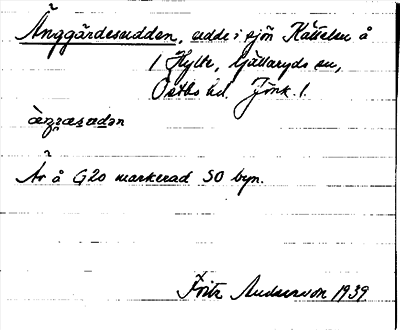 Änggärdesudden, udde i sjön Kättelen å
1 Hylte, Gällaryds sn,
Östbo hd. Jönk. l.
Är å G20 markerad SO byn.
Fritz Andersson 1939